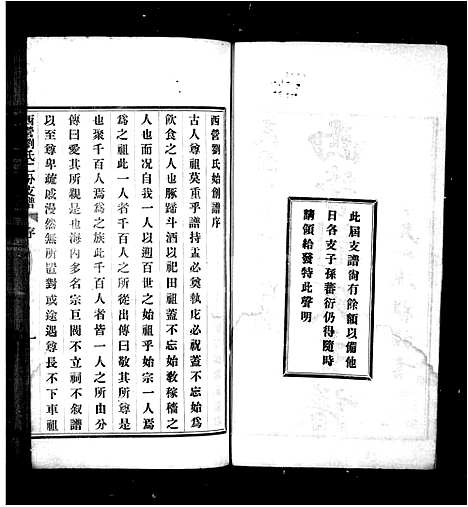 此屆支譜尙有餘額以備他
日各支子孫蕃衍仍得隨時
請領給發特此聲明
西營劉氏始創譜序
古人尊祖莫重乎譜持盂必奠執庀必祝蓋不忘始爲
飲食之人也豚蹄斗酒以祀田祖蓋不忘始敎稼穡之
人也而况自我一人以遡百世之始祖乎始宗一人焉
爲之祖此一人者千百人之所從出傳曰敬其所尊是
也聚千百人爲之族此千百人者皆一人之所由分
傳曰愛其所親是也海內多名宗巨閥不立祠不叙譜
以至尊卑疏戚漫然無所置對或途遇尊長不下車祖
西營劉氏二分支譜 序 一